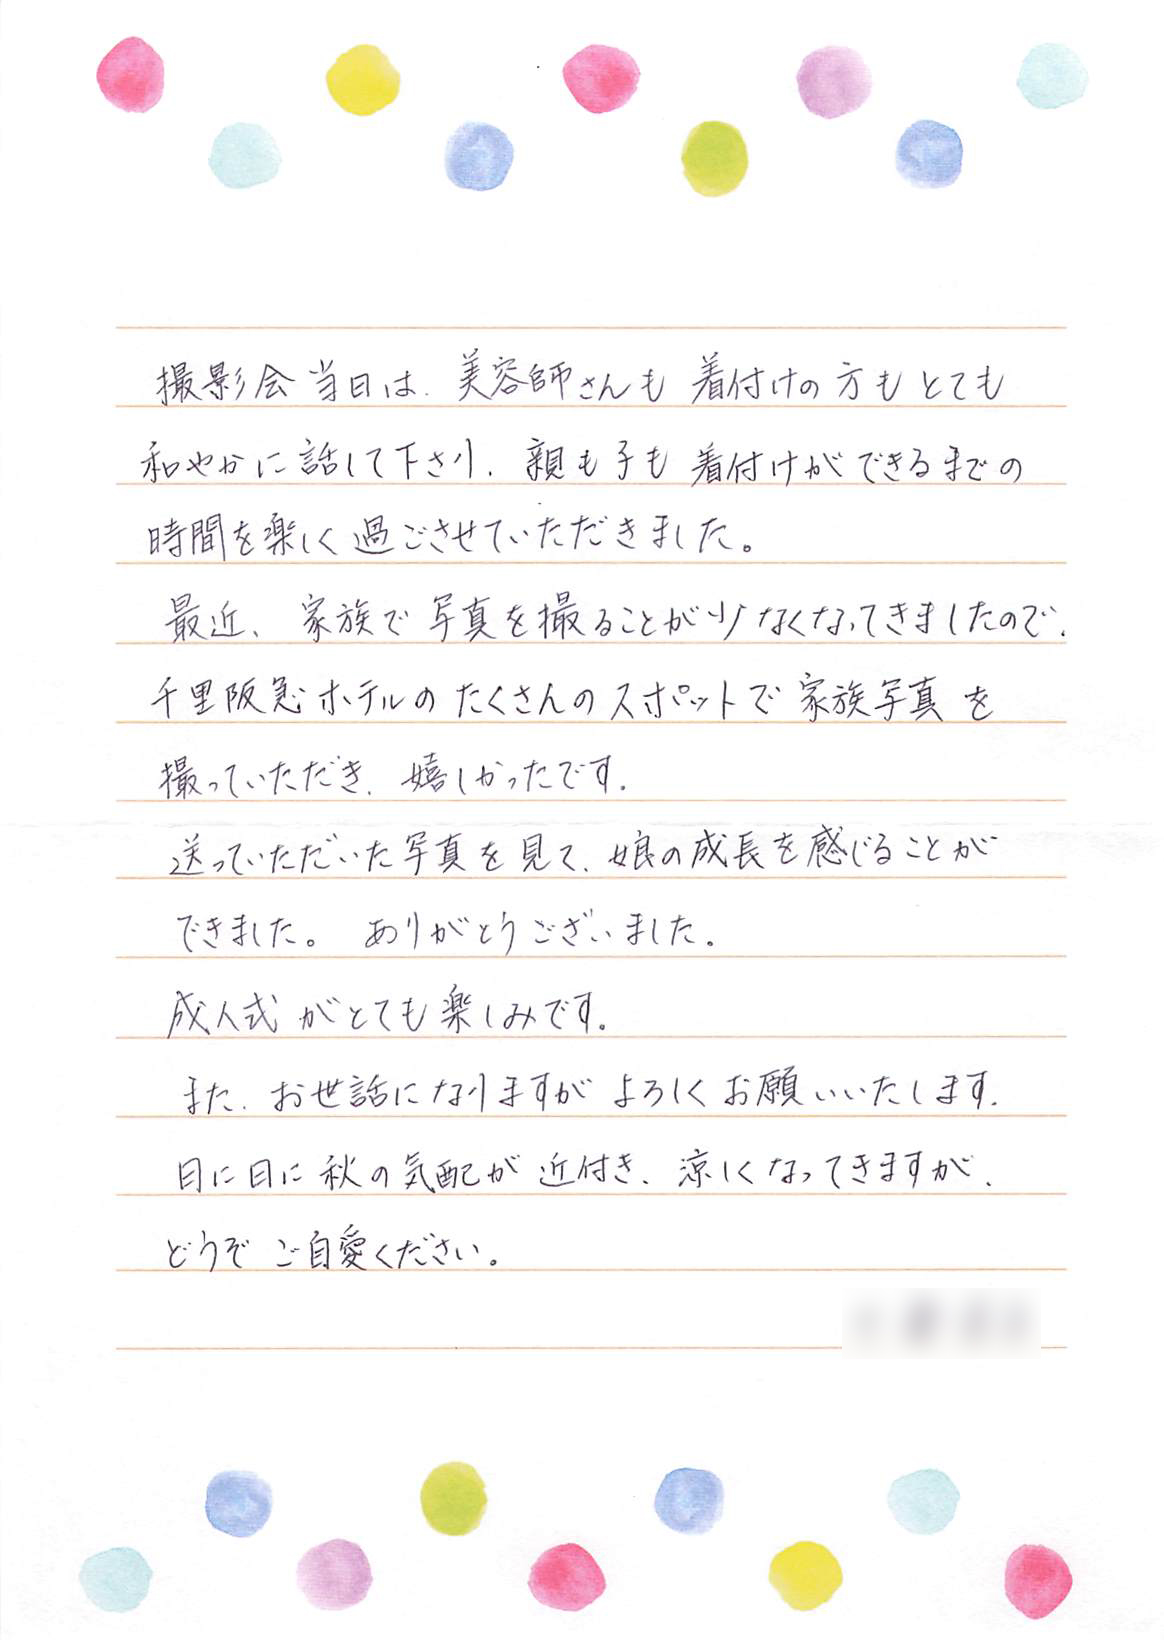 撮影会当日は、美容師さんも着付けの方もとても
和やかに話して下さり、親も子も着付けができるまでの
時間を楽しく過ごさせていただきました。
最近、家族で写真を撮ることが少なくなってきましたので、
千里阪急ホテルのたくさんのスポットで家族写真を
撮っていただき、嬉しかったです。
送っていただいた写真を見て、娘の成長を感じることが
できました。 ありがとうございました。
成人式がとても楽しみです。
また、お世話になりますがよろしくお願いいたします。
日に日に秋の気配が近付き、涼しくなってきますが、
どうぞご自愛ください。